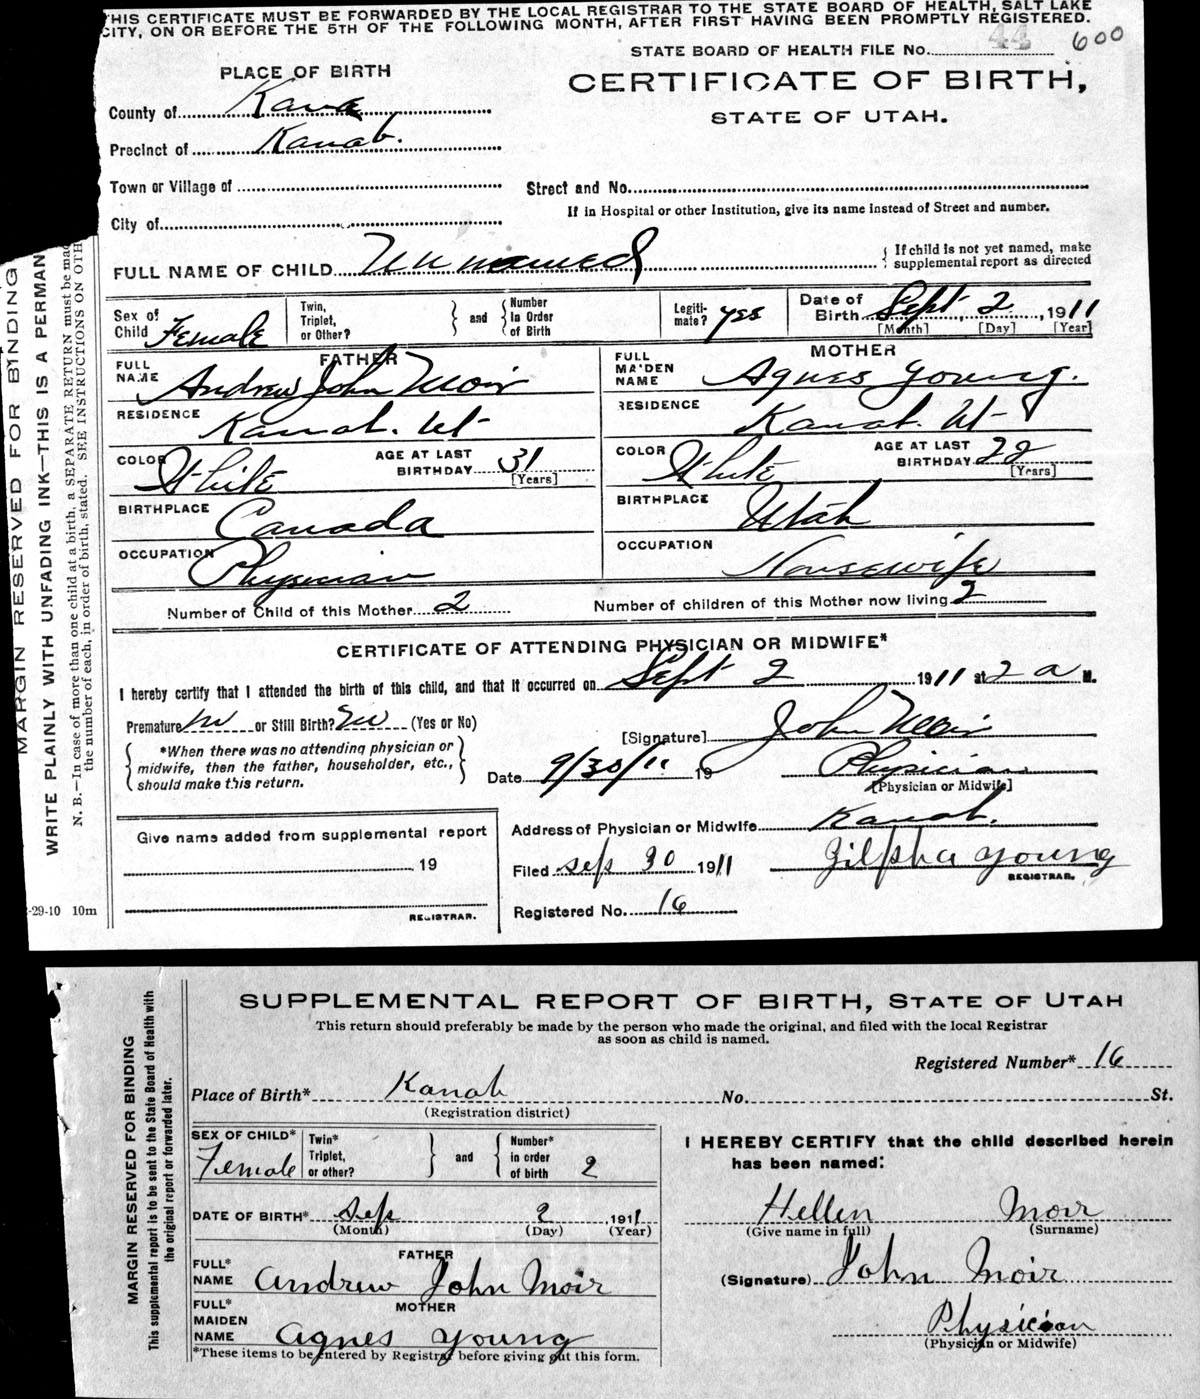 THIS CERTIFICATE MUST BE FORWARDED BY THE LOCAL REGISTRAR TO THE STATE BOARD OF HEALTH, SALT LAKE
CITY, ON OR BEFORE THE 5TH OF THE FOLLOWING MONTH, AFTER FIRST HAVING BEEN PROMPTLY REGISTERED.
STATE BOARD OF HEALTH FILE No. 44 600
PLACE OF BIRTH
CERTIFICATE OF BIRTH,
STATE OF UTAH.
County of Kane
Precinct of Kanab.
Town or Village of
Street and No.
If in Hospital or other Institution, give its name instead of Street and number.
City of
FULL NAME OF CHILD Unnamed
If child is not yet named, make supplemental report as directed
Sex of Child Female
Twin, Triplet, or Other?
and
Number in Order of Birth
Legiti-mate? yes
Date of Birth Sept. 2, 1911
[Month] [Day] [Year]
FATHER
FULL NAME Andrew John Moir
MOTHER
FULL MAIDEN NAME Agnes Young.
RESIDENCE Kanab. Ut-
RESIDENCE Kanab. Ut-
COLOR White
AGE AT LAST BIRTHDAY 31 [Years]
COLOR White
AGE AT LAST BIRTHDAY 22 [Years]
BIRTHPLACE Canada
BIRTHPLACE Utah
OCCUPATION Physician
OCCUPATION Housewife
Number of Child of this Mother 2
Number of children of this Mother now living 2
CERTIFICATE OF ATTENDING PHYSICIAN OR MIDWIFE*
I hereby certify that I attended the birth of this child, and that it occurred on Sept 2 1911 at 2 a M.
Premature no or Still Birth? no (Yes or No)
*When there was no attending physician or
midwife, then the father, householder, etc.,
should make this return.
[Signature] John Moir
Date 9/30/11 19
Physician
[Physician or Midwife]
Give name added from supplemental report
19
REGISTRAR.
Address of Physician or Midwife Kanab.
Filed Sep 30 1911
Zilpha Young
REGISTRAR.
Registered No. 16
-29-10 10m
MARGIN RESERVED FOR BINDING
WRITE PLAINLY WITH UNFADING INK—THIS IS A PERMAN
N. B.—In case of more than one child at a birth, a SEPARATE RETURN must be mad
the number of each, in order of birth, stated. SEE INSTRUCTIONS ON OTH
SUPPLEMENTAL REPORT OF BIRTH, STATE OF UTAH
This return should preferably be made by the person who made the original, and filed with the local Registrar
as soon as child is named.
Registered Number* 16
Place of Birth* Kanab No. St.
(Registration district)
SEX OF CHILD* Female
Twin* Triplet, or other?
and
Number* in order of birth 2
DATE OF BIRTH* Sep 2 1911
(Month) (Day) (Year)
FATHER
FULL* NAME Andrew John Moir
MOTHER
FULL* MAIDEN NAME Agnes Young
*These items to be entered by Registrar before giving out this form.
I HEREBY CERTIFY that the child described herein
has been named:
Hellen Moir
(Give name in full) (Surname)
(Signature) John Moir
Physician
(Physician or Midwife)
MARGIN RESERVED FOR BINDING
This supplemental report is to be sent to the State Board of Health with
the original report or forwarded later.